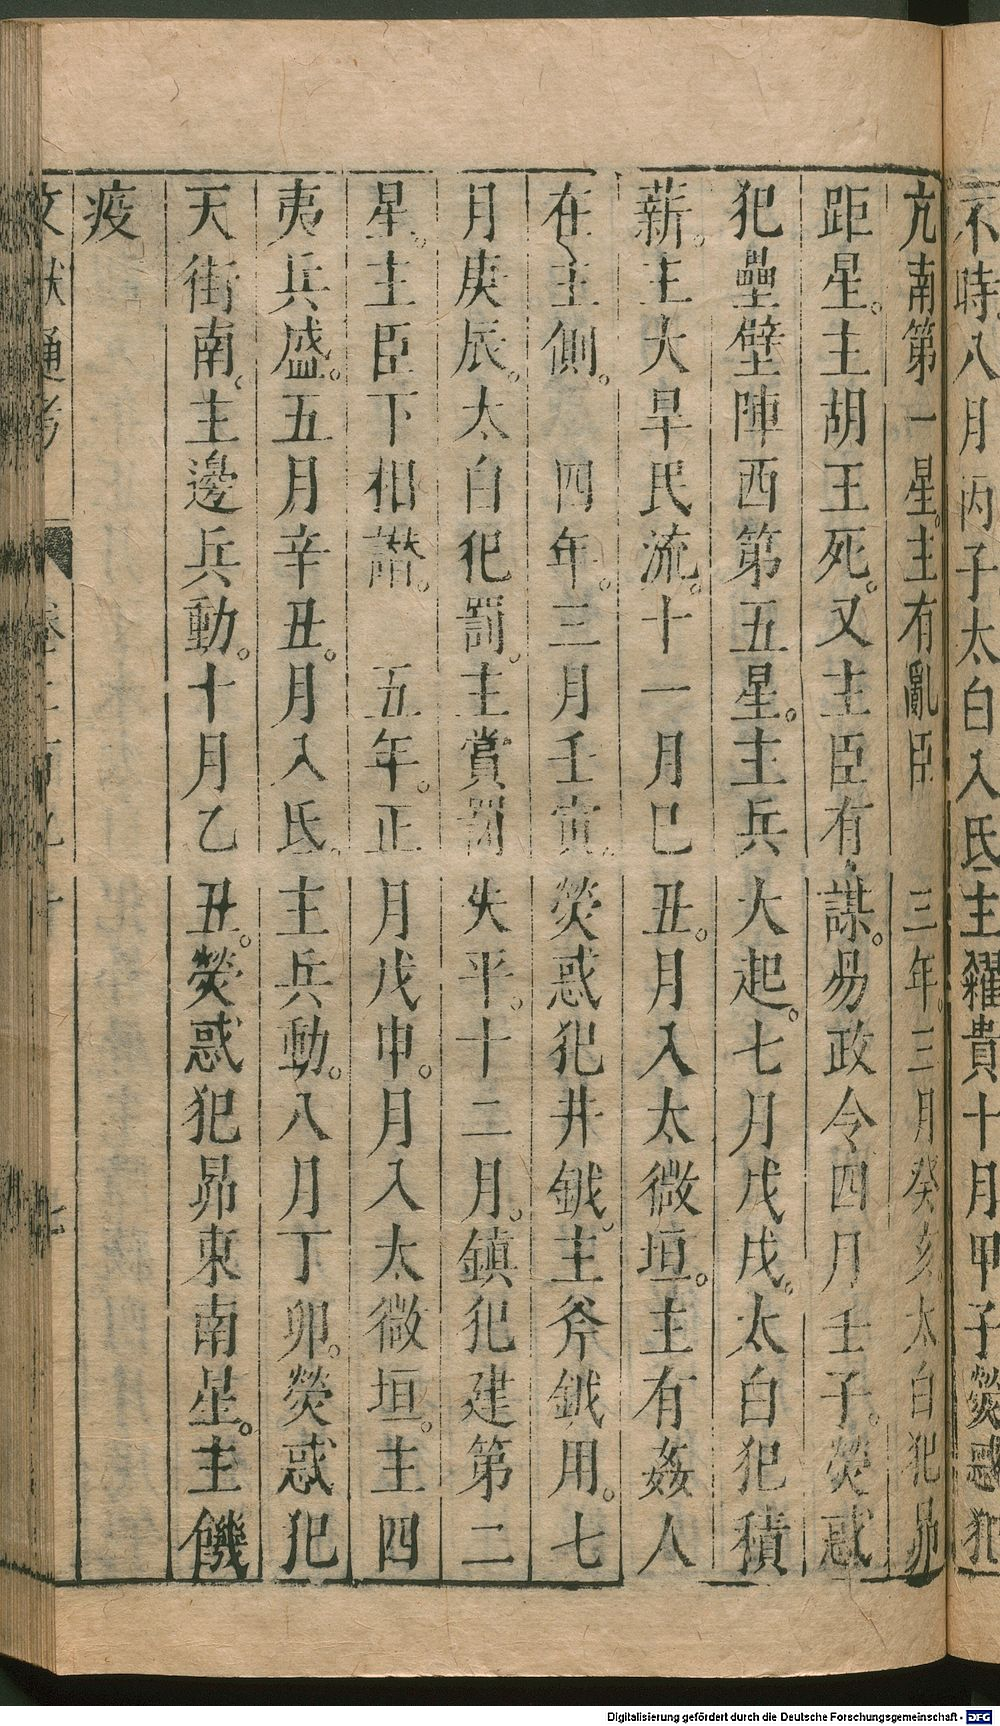 不時八月丙子太白入氐主糴貴十月甲子熒惑犯
亢南第一星。主有亂臣　三年。三月癸亥。太白犯昴
距星。主胡王死。又主臣有謀。易政令四月壬子。熒惑
犯壘壁陣西第五星。主兵大起。七月戊戌。太白犯積
薪。主大旱民流。十一月巳丑。月入太微垣。主有姦人
在主側。　四年。三月壬寅。熒惑犯井鉞。主斧鉞用。七
月庚辰。太白犯罰。主賞罰失平。十二月。鎮犯建第二
星。主臣下相譖。　五年。正月戊申。月入太微垣。主四
夷兵盛。五月辛丑。月入氐。主兵動。八月丁卯。熒惑犯
天街南。主邊兵動。十月乙丑。熒惑犯昴東南星。主饑
疫
文獻通考
Digitalisierung gefördert durch die Deutsche Forschungsgemeinschaft - DFG